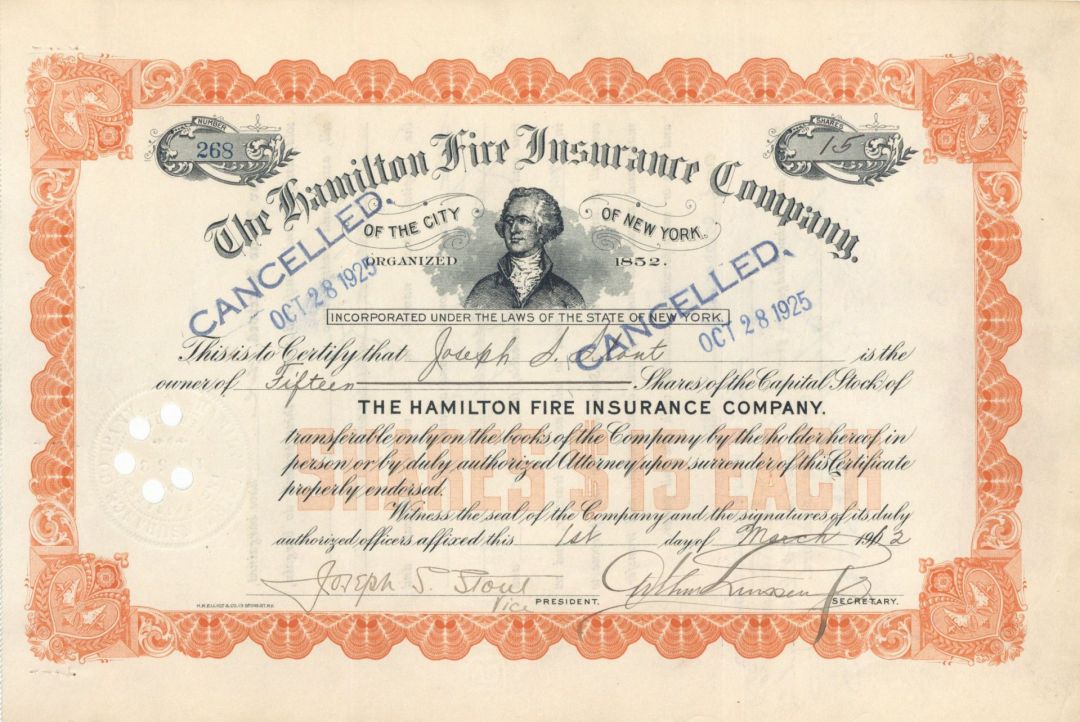 NUMBER
268
SHARES
15
The Hamilton Fire Insurance Company.
OF THE CITY OF NEW YORK.
ORGANIZED 1852.
CANCELLED.
OCT 28 1925
CANCELLED.
OCT 28 1925
INCORPORATED UNDER THE LAWS OF THE STATE OF NEW YORK.
This is to Certify that Joseph S. Stout is the
owner of Fifteen Shares of the Capital Stock of
THE HAMILTON FIRE INSURANCE COMPANY.
SHARES $15 EACH
transferable only on the books of the Company by the holder hereof in
person or by duly authorized Attorney upon surrender of this Certificate
properly endorsed.
Witness the seal of the Company and the signatures of its duly
authorized officers affixed this 1st day of March 1912
Joseph S. Stout
Vice PRESIDENT.
SECRETARY.